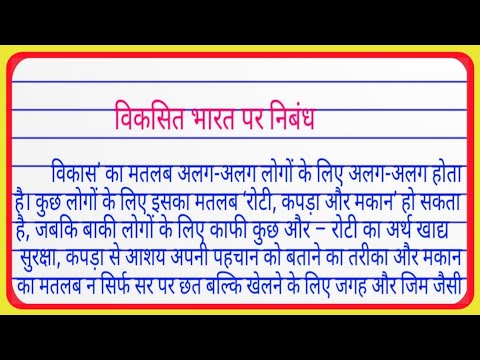 विकसित भारत पर निबंध
विकास' का मतलब अलग-अलग लोगों के लिए अलग-अलग होता
है। कुछ लोगों के लिए इसका मतलब 'रोटी, कपड़ा और मकान' हो सकता
है, जबकि बाकी लोगों के लिए काफी कुछ और – रोटी का अर्थ खाद्य
सुरक्षा, कपड़ा से आशय अपनी पहचान को बताने का तरीका और मकान
का मतलब न सिर्फ सर पर छत बल्कि खेलने के लिए जगह और जिम जैसी